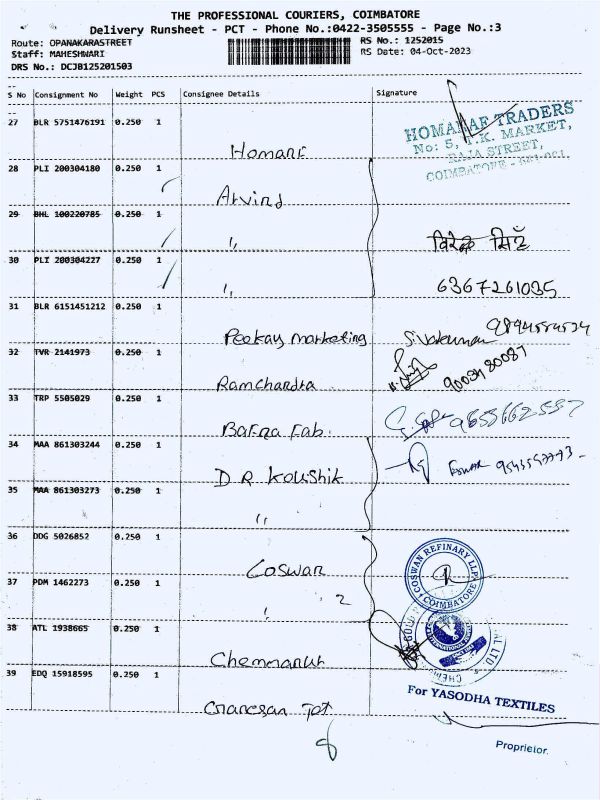 THE PROFESSIONAL COURIERS, COIMBATORE
Delivery Runsheet - PCT - Phone No.:0422-3505555 - Page No.:3
Route: OPANAKARASTREET
RS No.: 1252015
Staff: MAHESHWARI
RS Date: 04-Oct-2023
DRS No.: DCJB125201503
S No Consignment No Weight PCS Consignee Details Signature
27 BLR 5751476191 0.250 1
HOMANAF TRADERS
No: 5, T.K. MARKET,
RAJA STREET,
COIMBATORE - 641 001
Homanf
28 PLI 200304180 0.250 1
Arvind
29 BHL 100220785 0.250 1
"
विरेन्द्र सिंह
30 PLI 200304227 0.250 1
"
6367261035
31 BLR 6151451212 0.250 1
Peekay marketing Sivakumar
32 TVR 2141973 0.250 1
Ramchandra
33 TRP 5505029 0.250 1
Bafna Fab.
34 MAA 861303244 0.250 1
D R Koushik
35 MAA 861303273 0.250 1
"
36 DDG 5026852 0.250 1
Coswan
COSWAN REFINARY LLP
COIMBATORE
37 PDM 1462273 0.250 1
2
38 ATL 1938665 0.250 1
Chemmanur
39 EDQ 15918595 0.250 1
For YASODHA TEXTILES
Ganesan Tpt
Proprietor.